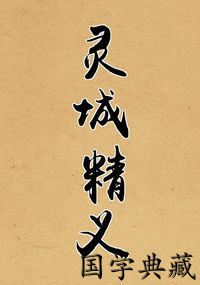 灵城精义
国学典藏